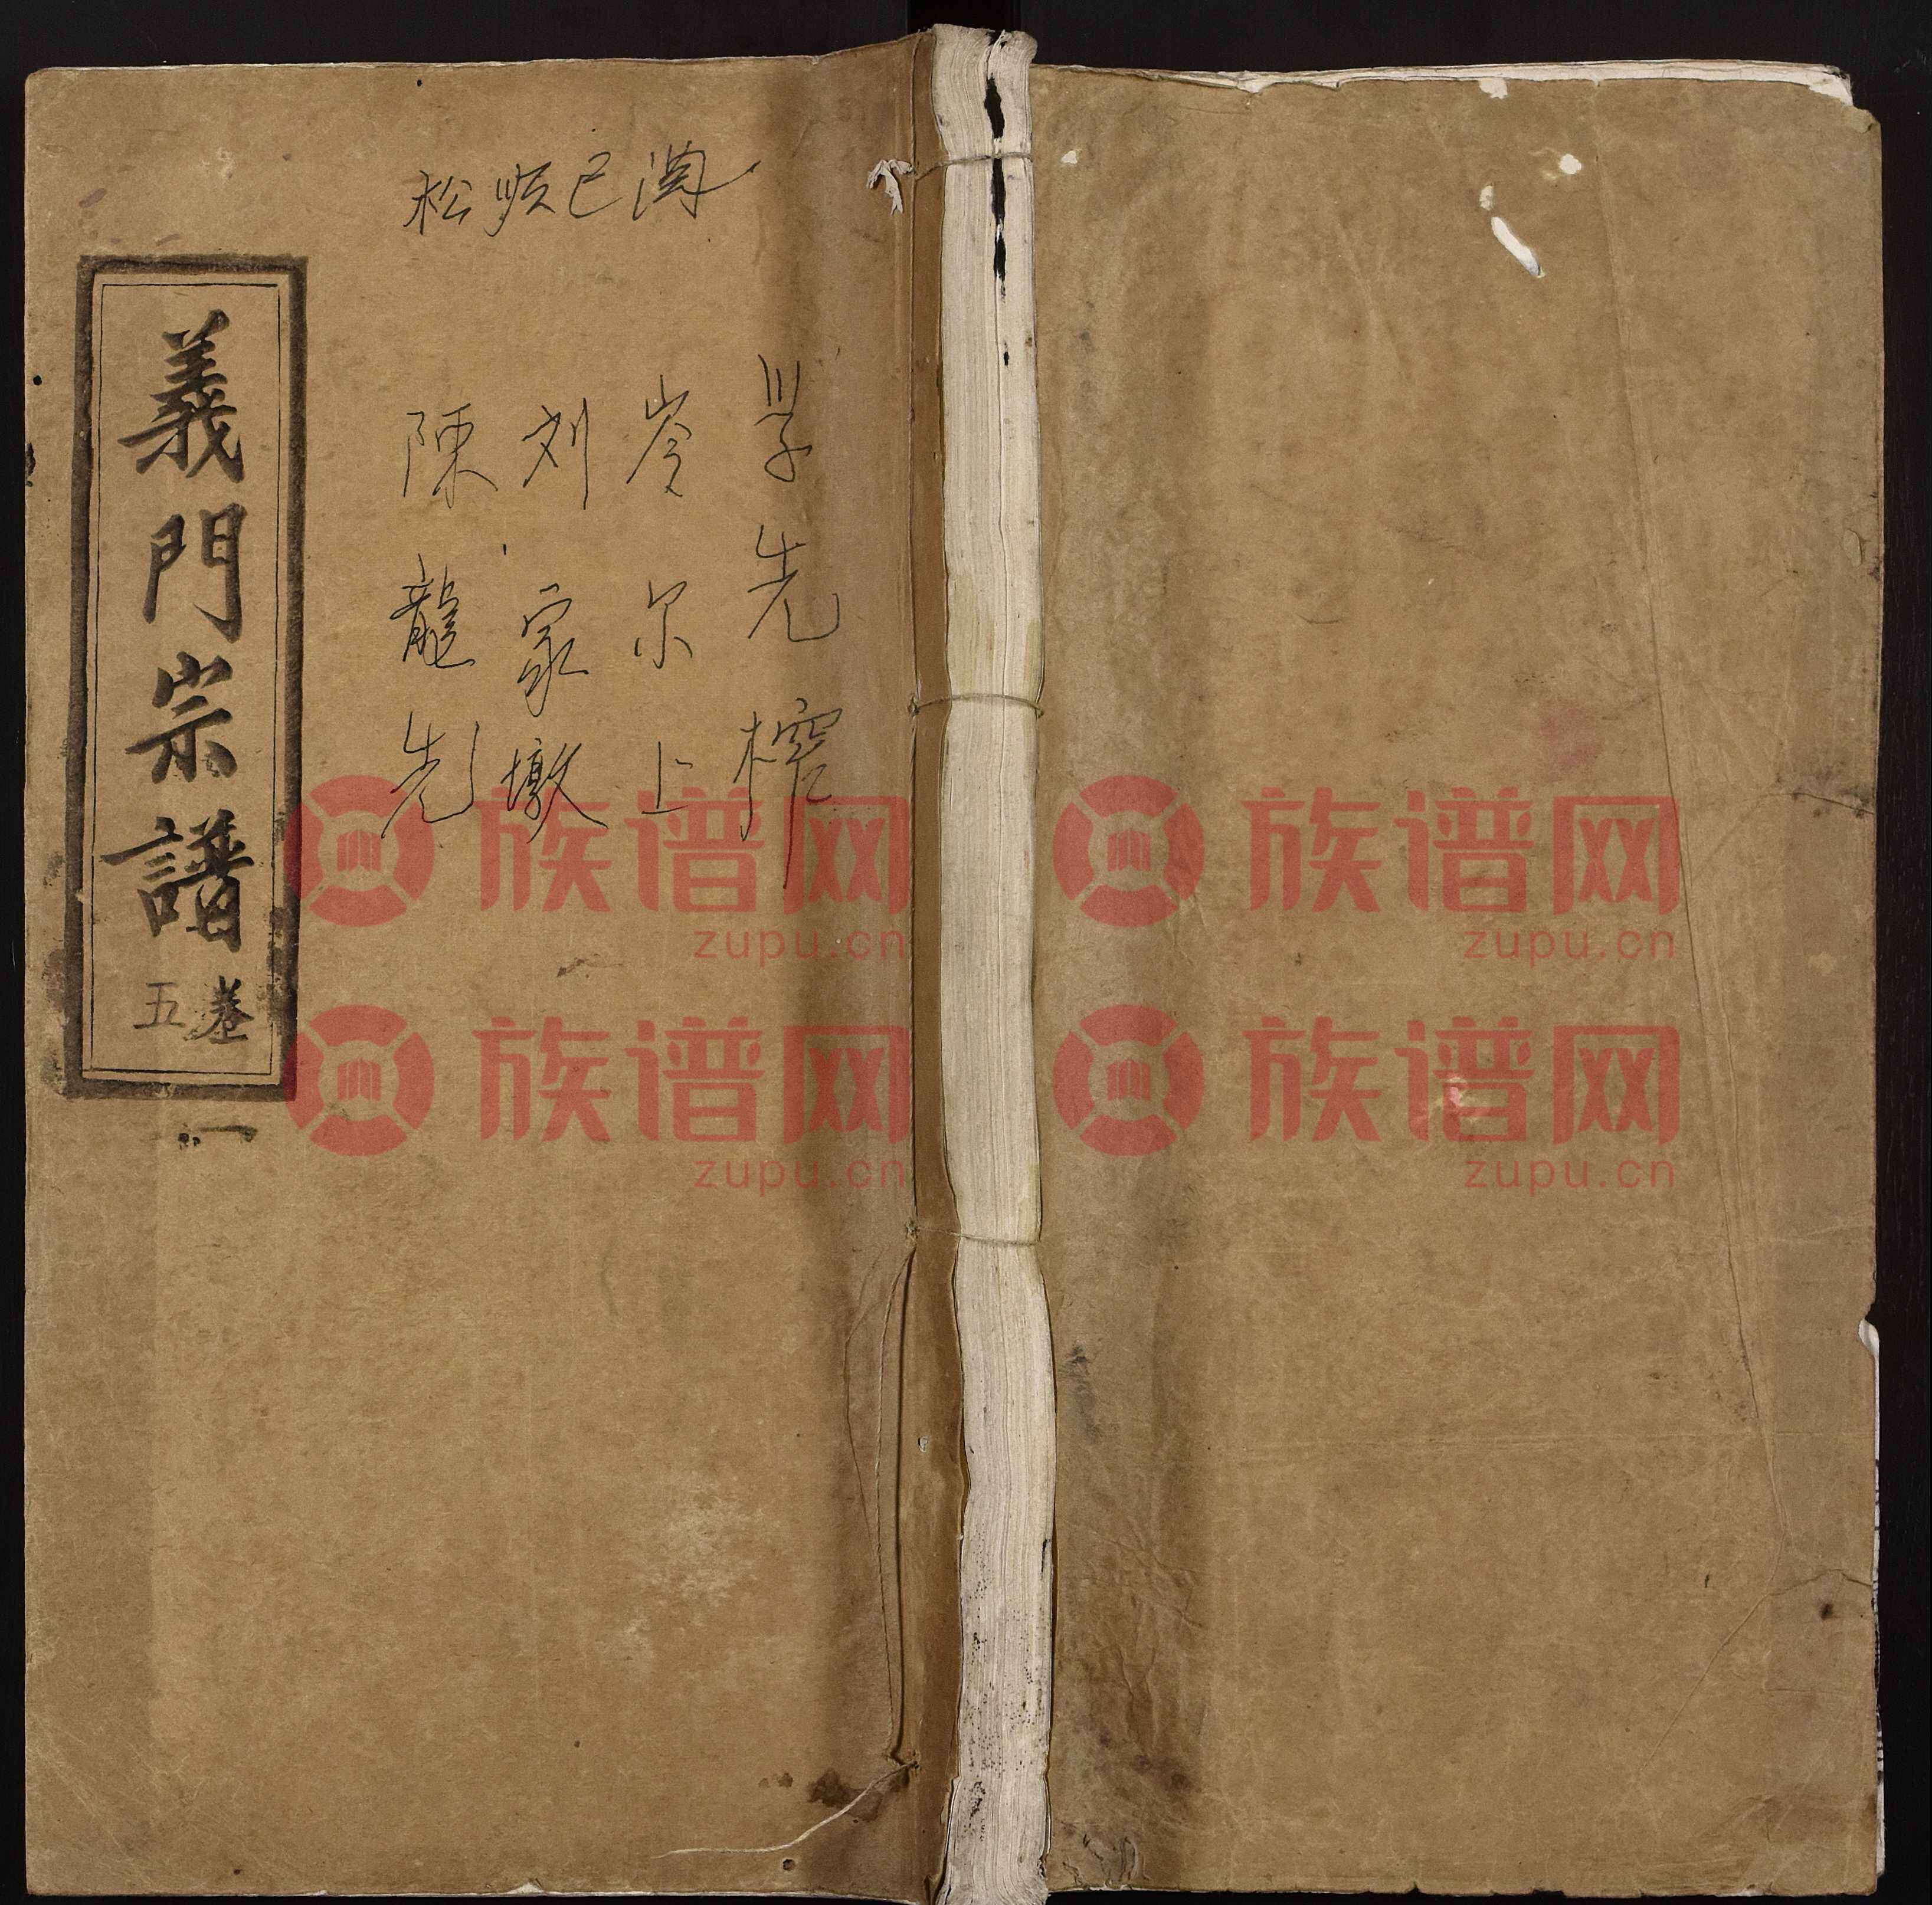 松顺已阅
学先榨
岑尔上
刘家墩
陳龍先
義門宗譜
卷五
一
族谱网
zupu.cn
族谱网
zupu.cn
族谱网
zupu.cn
族谱网
zupu.cn